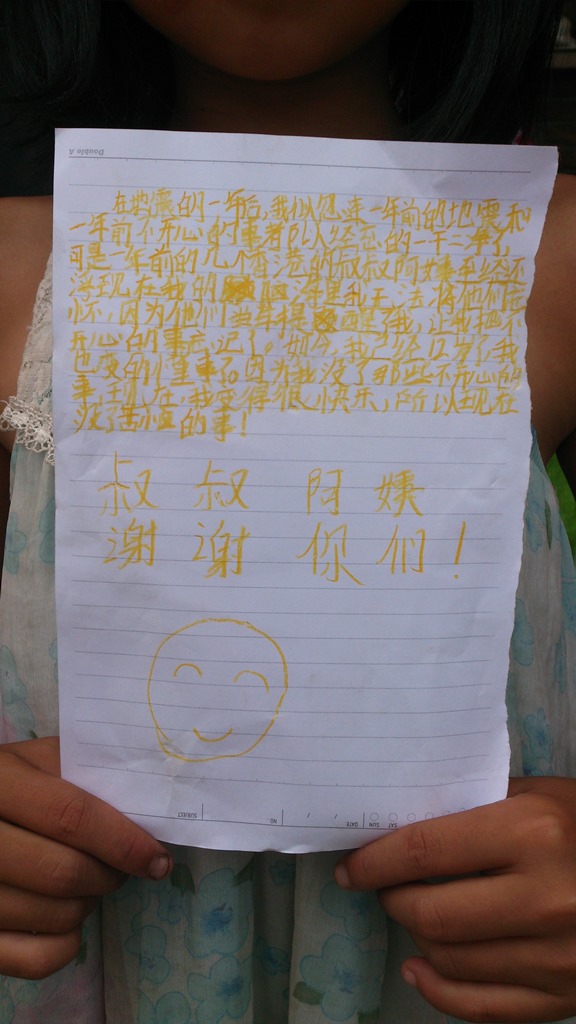 Double A
在地震的一年后,我似忽来一年前的地震和
一年前不开心的事者队入经忘的一干二净了,
可是一年前的几个香港的叔叔阿姨手经还
浮现在我的脑海是我无法将他们忘
怀,因为他们当年提醒了我,让我把不
开心的事忘记了。如今,我已经12岁了我
也变的懂事了。因为我没了那些不开心的
事,到现在,我变得很快乐,所以现在
没了苦恼的事!
叔叔阿姨
谢谢你们!
SUBJECT NO. / / DATE SUN SAT